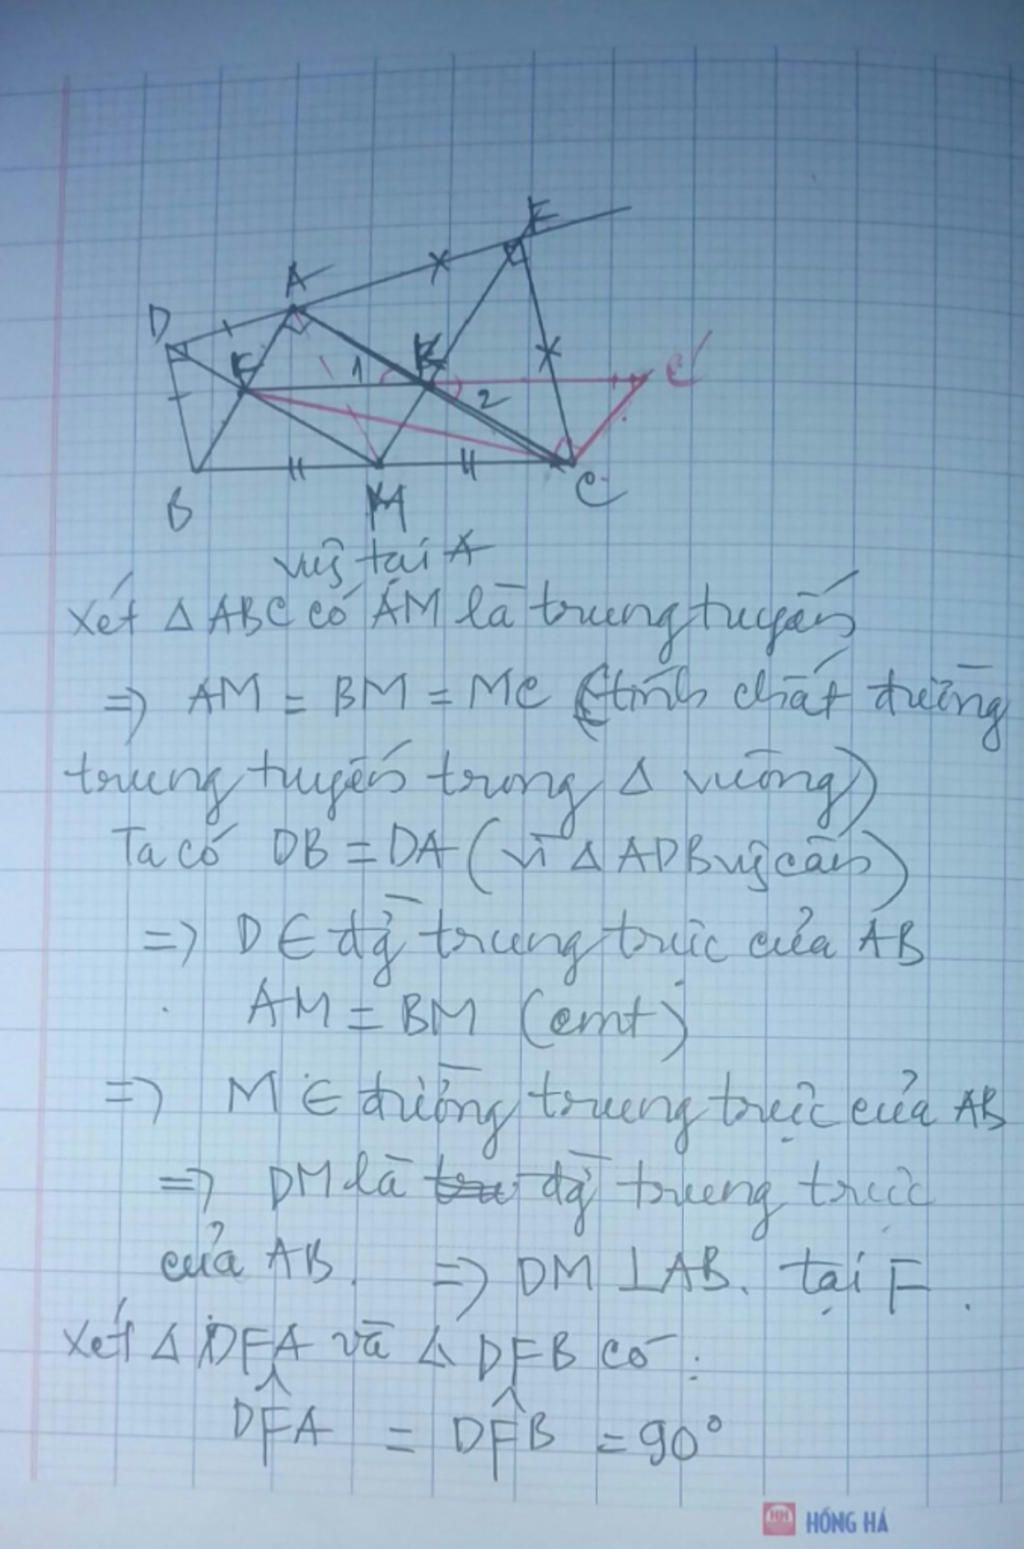 A
E
D
F
1
K
2
C'
B
M
C
vg tại A
Xét Δ ABC có AM là trung tuyến
=> AM = BM = MC (tính chất đường
trung tuyến trong Δ vuông)
Ta có DB = DA (vì Δ ADB vg cân)
=> D ∈ đg trung trực của AB
AM = BM (cmt)
=> M ∈ đường trung trực của AB
=> DM là đg trung trực
của AB. => DM ⊥ AB. tại F.
Xét Δ DFA và Δ DFB có:
DF̂A = DF̂B = 90°
HH HỒNG HÀ